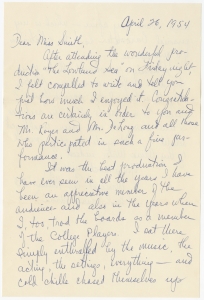 April 26, 1954
Dear Miss Smith,
After attending the wonderful pro-
duction "The Leotand Sea" on Friday night,
I felt compelled to write and tell you
just how much I enjoyed it. Congratula-
tions are certainly in order to you and
Mr. Royer and Mr. DeLong and all those
who participated in such a fine per-
formance.
It was the best production I
have ever seen in all the years I have
been an appreciative member of the
audience and also in the years when
I, too, trod the boards as a member
of the College Players. I sat there
simply enthralled by the music, the
acting, the settings, everything — and
cold chills chased themselves up